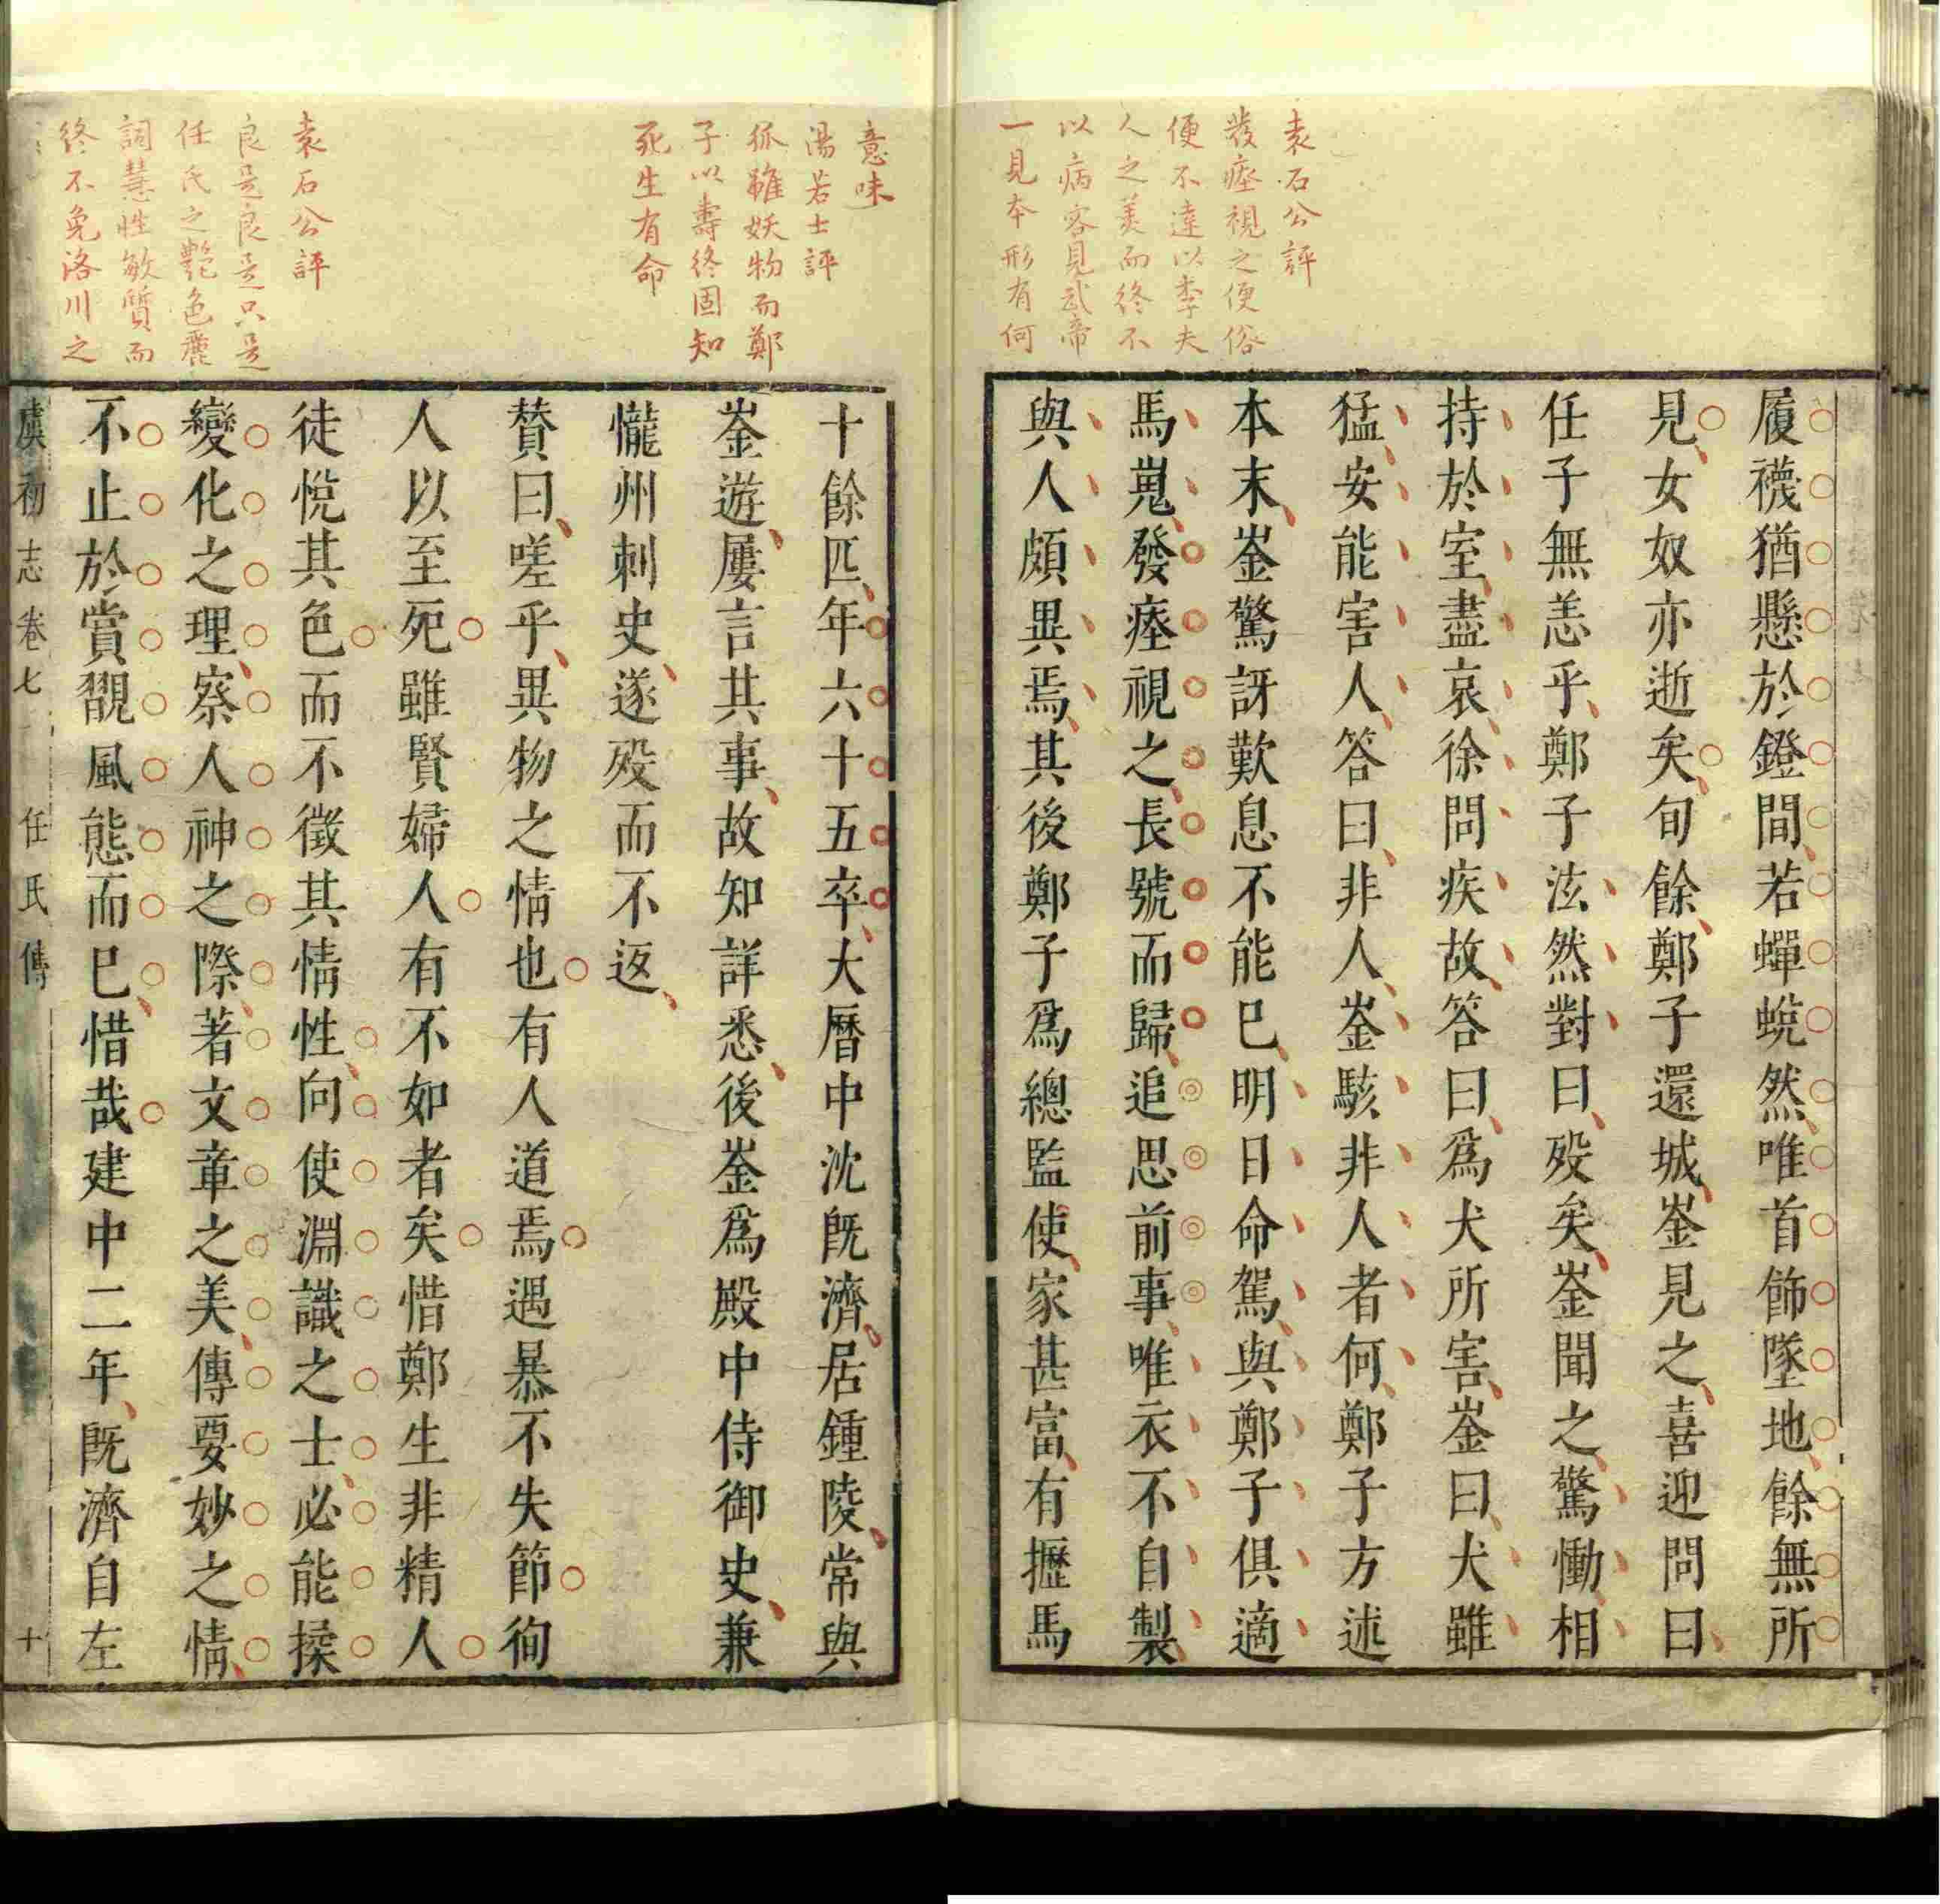 袁石公評
發瘞視之便俗
便不達以李夫
人之美而終不
以病容見武帝
一見本形有何
履襪猶懸於鐙間若蟬蛻然唯首飾墜地餘無所
見女奴亦逝矣旬餘鄭子還城崟見之喜迎問曰
任子無恙乎鄭子泫然對曰歿矣崟聞之驚慟相
持於室盡哀徐問疾故答曰爲犬所害崟曰犬雖
猛安能害人答曰非人崟駭非人者何鄭子方述
本末崟驚訝歎息不能已明日命駕與鄭子俱適
馬嵬發瘞視之長號而歸追思前事唯衣不自製
與人頗異焉其後鄭子爲總監使家甚富有櫪馬
意味
湯若士評
狐雖妖物而鄭
子以壽終固知
死生有命
袁石公評
良是良是只是
任氏之艷色麗
詞慧性敏質而
終不免洛川之
十餘匹年六十五卒大曆中沈既濟居鍾陵常與
崟遊屢言其事故知詳悉後崟爲殿中侍御史兼
隴州刺史遂歿而不返
贊曰嗟乎異物之情也有人道焉遇暴不失節徇
人以至死雖賢婦人有不如者矣惜鄭生非精人
徒悅其色而不徵其情性向使淵識之士必能揉
變化之理察人神之際著文章之美傳要妙之情
不止於賞翫風態而已惜哉建中二年既濟自左
虞初志卷七 任氏傳 十